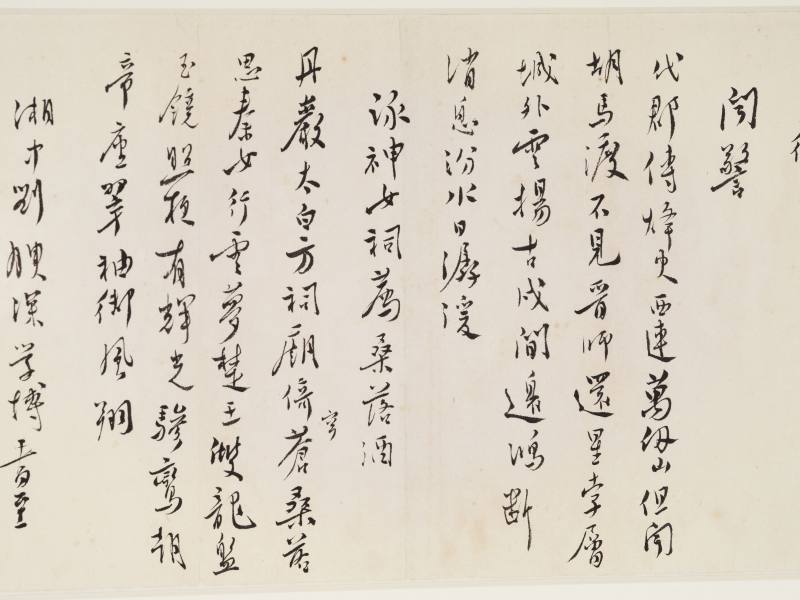 聞警
代郡傳烽火西連萬仞山但聞
胡馬渡不見晉師還星孛層
城外雲揚古戍間邊鴻斷
消息汾水日潺湲
詠神女祠薦桑落酒
丹巖太白方祠廟倚蒼穹桑落
思秦女行雲夢楚王雙龍盤
玉鏡照有輝光驂鸞朝
帝座翠袖御風翔
湘中劉腴深學博書至